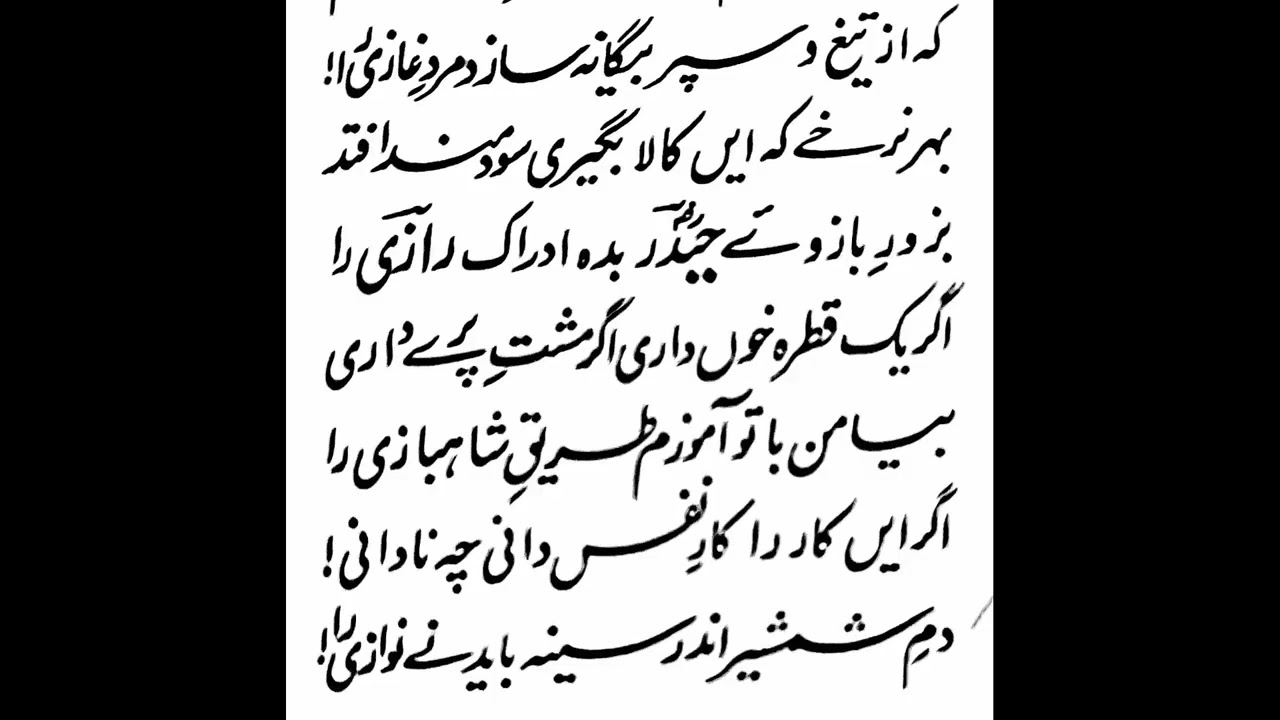 که از تیغ و سپر بیگانه سازد مردِ غازی را!
بهر نرخے که ایں کالا بگیری سودمند افتد
بزورِ بازوئے حیدرؓ بدہ ادراک رازیؔ را
اگر یک قطرہ خوں داری اگر مشتِ پرے داری
بیا من با تو آموزم طریقِ شاہبازی را
اگر ایں کار را کارِ نفس دانی چه نادانی!
دمِ شمشیر اندر سینه باید نے نوازی را!